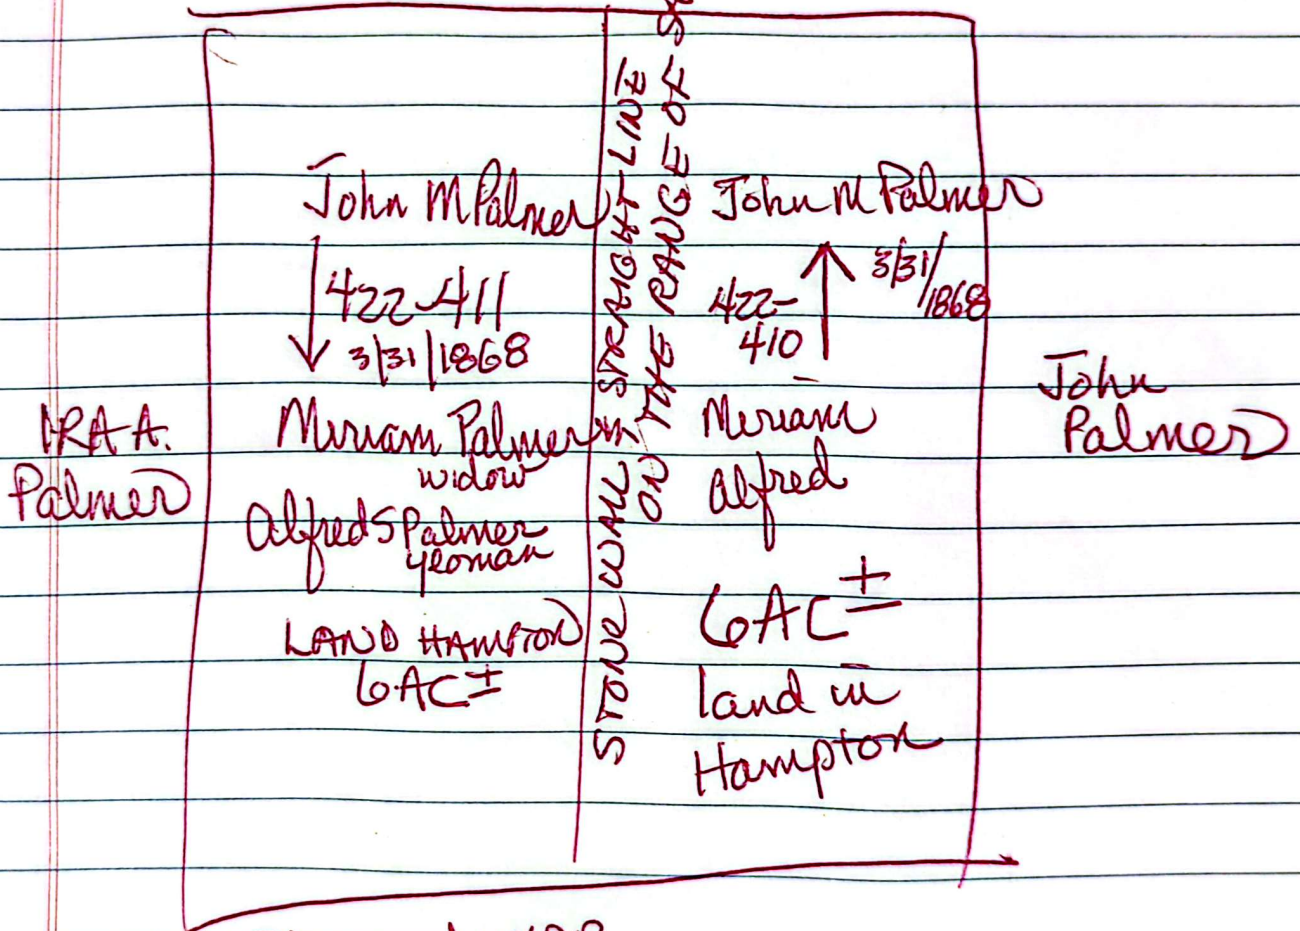 John M Palmer
422-411
3/31/1868
Miriam Palmer
widow
Alfred S Palmer
yeoman
LAND HAMPTON
6AC±
IRA A.
Palmer
STONE WALL STRAIGHT LINE
ON THE RANGE OF
John M Palmer
3/31/
1868
422-
410
Miriam
Alfred
6AC±
land in
Hampton
John
Palmer